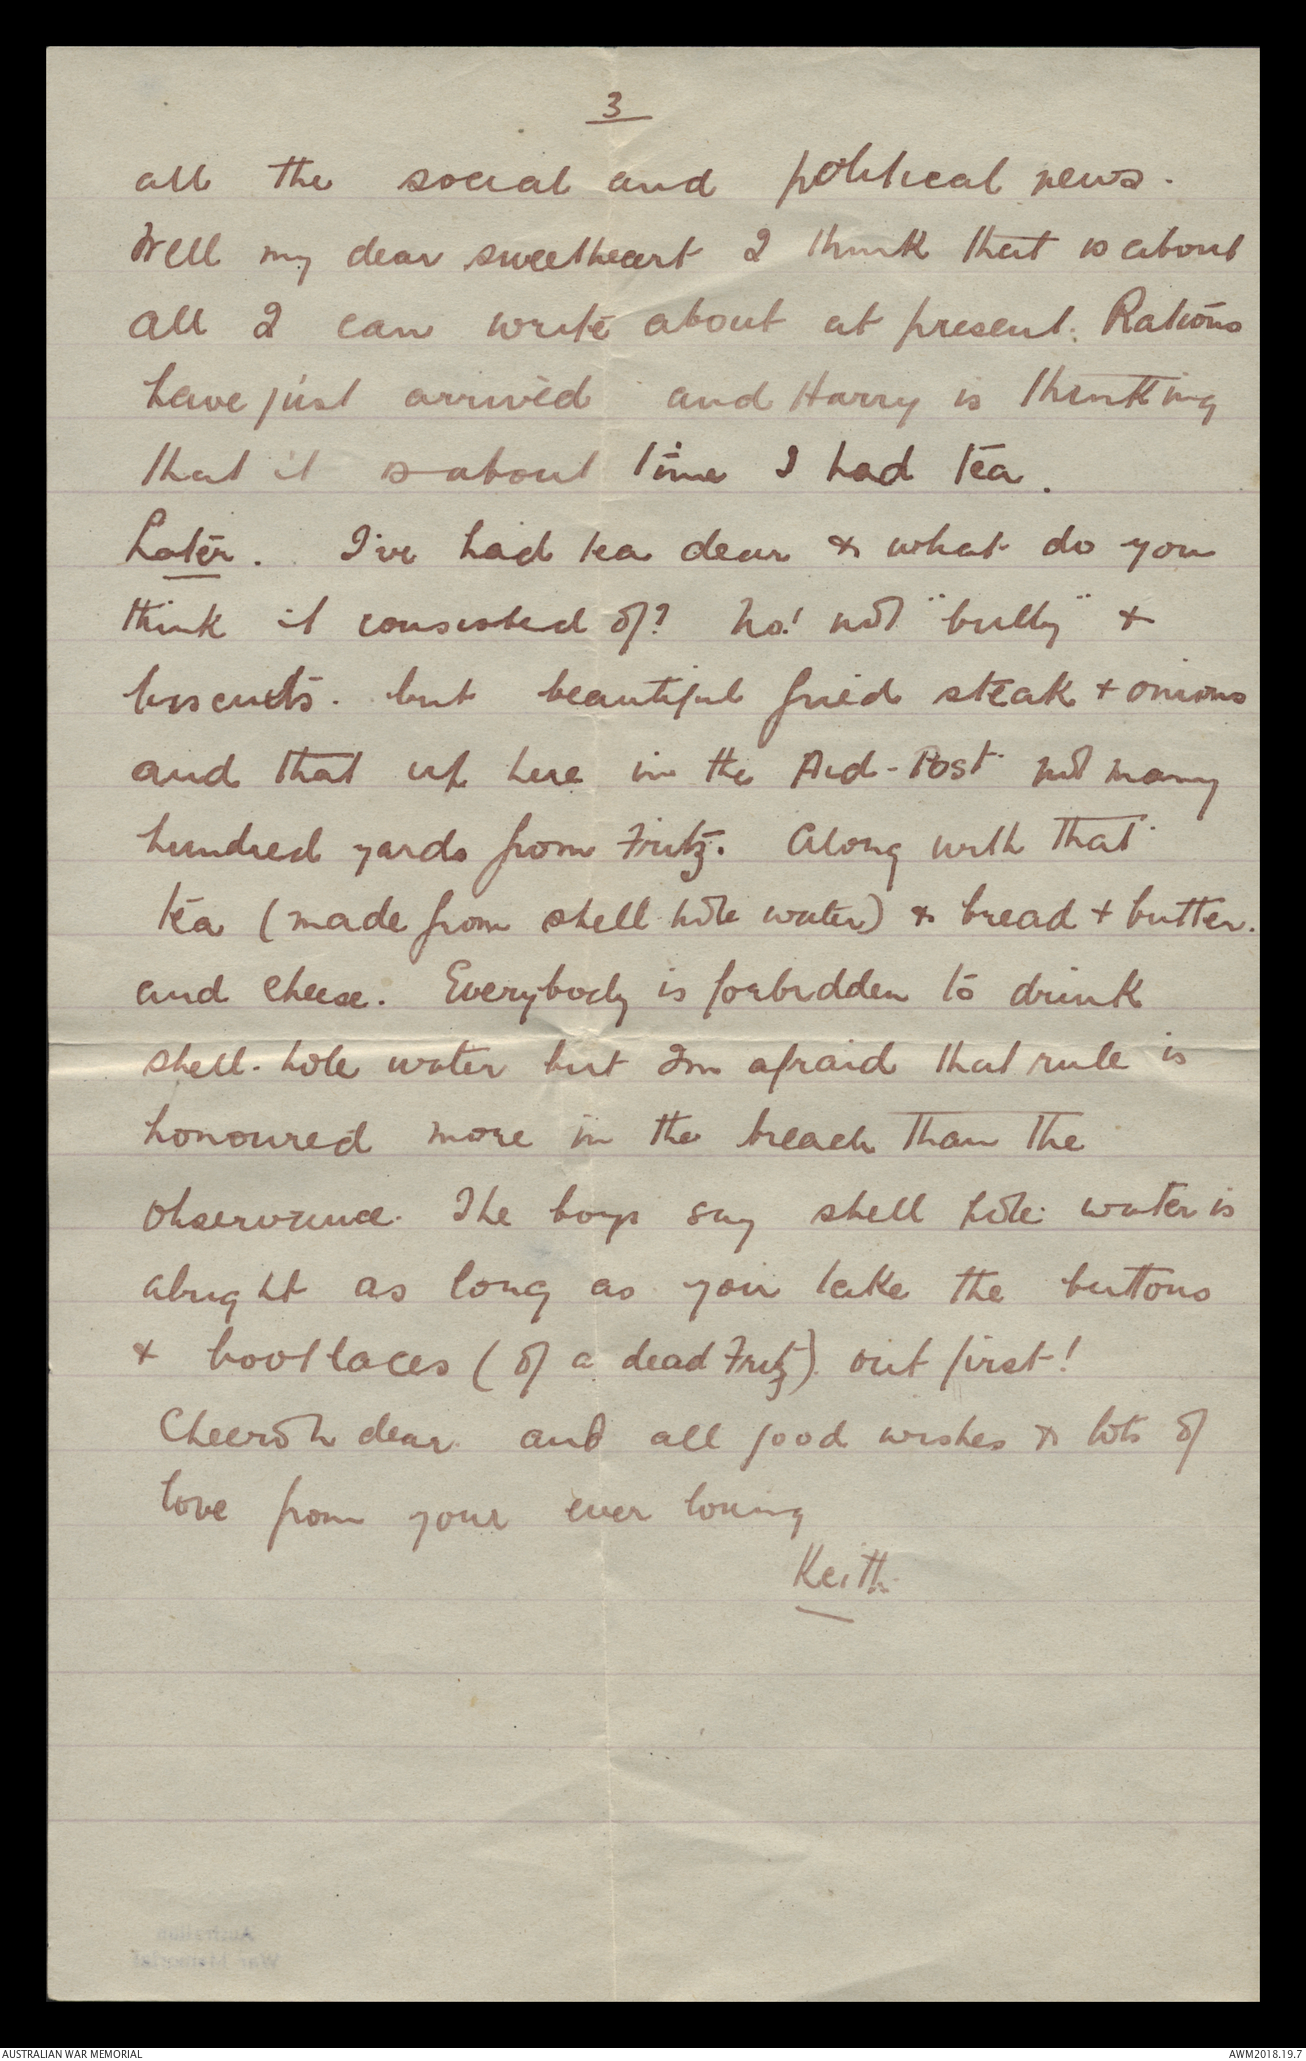 3
all the social and political news.
Well my dear sweetheart I think that is about
all I can write about at present. Rations
have just arrived and Harry is thinking
that it is about time I had tea.
Later. I've had tea dear & what do you
think it consisted of? No! not "bully" &
biscuits. but beautiful fried steak + onions
and that up here in the Aid-Post not many
hundred yards from Fritz. Along with that
tea (made from shell hole water) & bread + butter.
and cheese. Everybody is forbidden to drink
shell-hole water but I'm afraid that rule is
honoured more in the breach than the
observance. The boys say shell hole water is
alright as long as you take the buttons
& bootlaces (of a dead Fritz) out first!
Cheeroh dear and all good wishes & lots of
love from your ever loving
Keith.
Australian
War Memorial
AUSTRALIAN WAR MEMORIAL
AWM2018.19.7